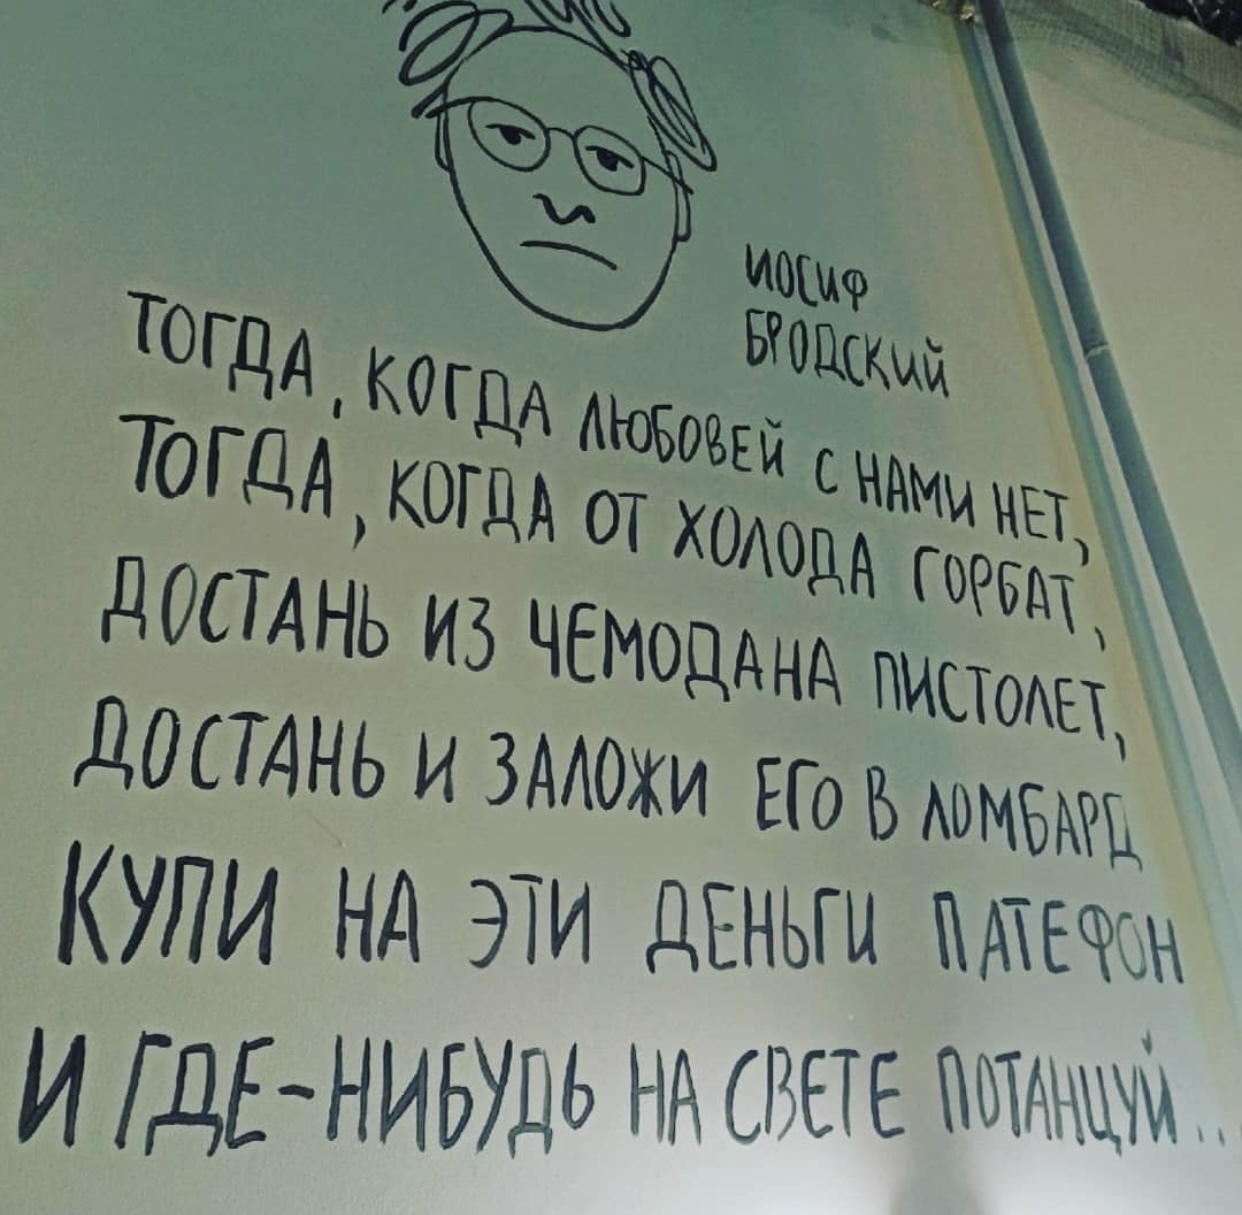 ИОСИФ
БРОДСКИЙ
ТОГДА, КОГДА ЛЮБОВЕЙ С НАМИ НЕТ,
ТОГДА, КОГДА ОТ ХОЛОДА ГОРБАТ,
ДОСТАНЬ ИЗ ЧЕМОДАНА ПИСТОЛЕТ,
ДОСТАНЬ И ЗАЛОЖИ ЕГО В ЛОМБАРД
КУПИ НА ЭТИ ДЕНЬГИ ПАТЕФОН
И ГДЕ-НИБУДЬ НА СВЕТЕ ПОТАНЦУЙ..